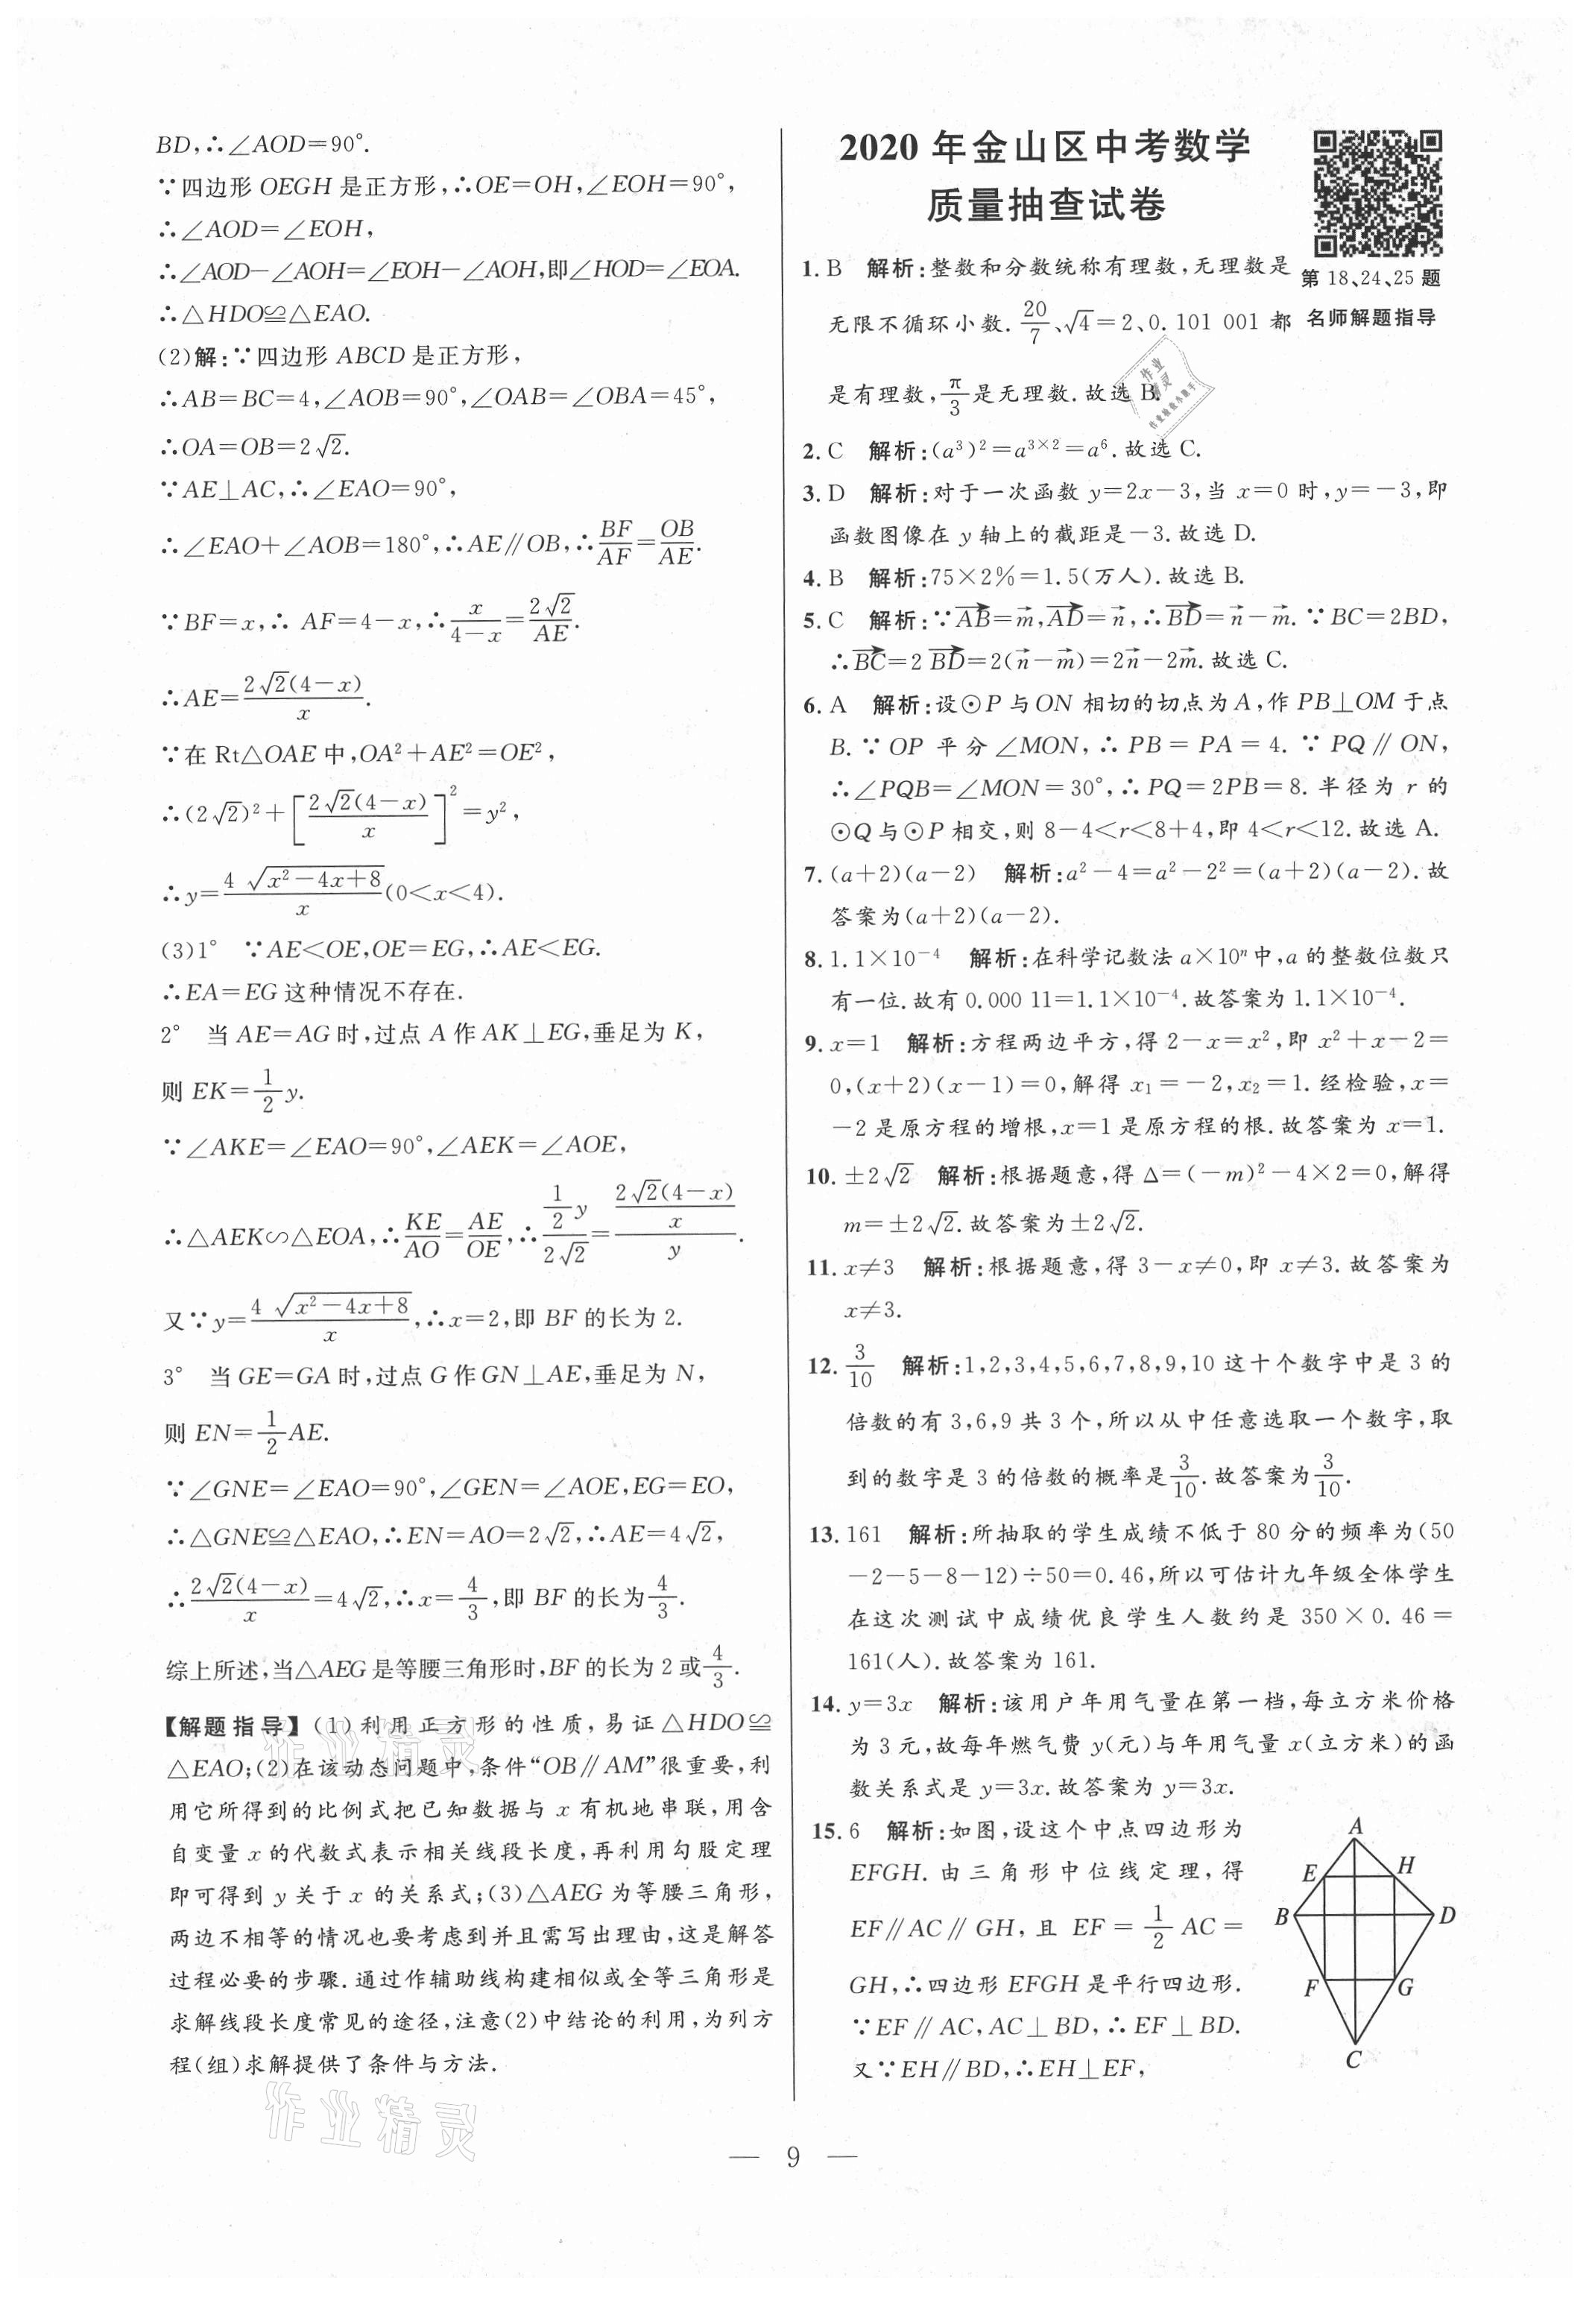 BD,∴∠AOD=90°.
∵四边形 OEGH 是正方形,∴OE=OH,∠EOH=90°,
∴∠AOD=∠EOH,
∴∠AOD-∠AOH=∠EOH-∠AOH,即∠HOD=∠EOA.
∴△HDO≌△EAO.
(2)解:∵四边形 ABCD 是正方形,
∴AB=BC=4,∠AOB=90°,∠OAB=∠OBA=45°,
∴OA=OB=2√2.
∵AE⊥AC,∴∠EAO=90°,
∴∠EAO+∠AOB=180°,∴AE∥OB,∴BF/AF=OB/AE.
∵BF=x,∴ AF=4-x,∴x/(4-x)=2√2/AE.
∴AE=2√2(4-x)/x.
∵在 Rt△OAE 中,OA²+AE²=OE²,
∴(2√2)²+[2√2(4-x)/x]²=y²,
∴y=4√(x²-4x+8)/x(0<x<4).
(3)1° ∵AE<OE,OE=EG,∴AE<EG.
∴EA=EG 这种情况不存在.
2° 当 AE=AG 时,过点 A 作 AK⊥EG,垂足为 K,
则 EK=1/2 y.
∵∠AKE=∠EAO=90°,∠AEK=∠AOE,
∴△AEK∽△EOA,∴KE/AO=AE/OE,∴(1/2 y)/(2√2)=(2√2(4-x)/x)/y.
又∵y=4√(x²-4x+8)/x,∴x=2,即 BF 的长为 2.
3° 当 GE=GA 时,过点 G 作 GN⊥AE,垂足为 N,
则 EN=1/2 AE.
∵∠GNE=∠EAO=90°,∠GEN=∠AOE,EG=EO,
∴△GNE≌△EAO,∴EN=AO=2√2,∴AE=4√2,
∴2√2(4-x)/x=4√2,∴x=4/3,即 BF 的长为4/3.
综上所述,当△AEG 是等腰三角形时,BF 的长为 2 或4/3.
【解题指导】(1)利用正方形的性质,易证△HDO≌
△EAO;(2)在该动态问题中,条件“OB∥AM”很重要,利
用它所得到的比例式把已知数据与 x 有机地串联,用含
自变量 x 的代数式表示相关线段长度,再利用勾股定理
即可得到 y 关于 x 的关系式;(3)△AEG 为等腰三角形,
两边不相等的情况也要考虑到并且需写出理由,这是解答
过程必要的步骤.通过作辅助线构建相似或全等三角形是
求解线段长度常见的途径,注意(2)中结论的利用,为列方
程(组)求解提供了条件与方法.
作业精灵
作业精灵
2020 年金山区中考数学
质量抽查试卷
第 18、24、25 题
名师解题指导
1. B 解析:整数和分数统称有理数,无理数是
无限不循环小数.20/7、√4=2、0.101 001 都
是有理数,π/3是无理数.故选 B.
作业
精灵
2. C 解析:(a³)²=a³ˣ²=a⁶.故选 C.
3. D 解析:对于一次函数 y=2x-3,当 x=0 时,y=-3,即
函数图像在 y 轴上的截距是-3.故选 D.
4. B 解析:75×2%=1.5(万人).故选 B.
5. C 解析:∵A⃗B⃗=m⃗,A⃗D⃗=n⃗,∴B⃗D⃗=n⃗-m⃗.∵BC=2BD,
∴B⃗C⃗=2 B⃗D⃗=2(n⃗-m⃗)=2n⃗-2m⃗.故选 C.
6. A 解析:设⊙P 与 ON 相切的切点为 A,作 PB⊥OM 于点
B.∵ OP 平分∠MON,∴ PB= PA = 4.∵ PQ∥ON,
∴∠PQB=∠MON=30°,∴PQ=2PB=8.半径为 r 的
⊙Q 与⊙P 相交,则 8-4<r<8+4,即 4<r<12.故选 A.
7. (a+2)(a-2) 解析:a²-4=a²-2²=(a+2)(a-2).故
答案为(a+2)(a-2).
8. 1.1×10⁻⁴ 解析:在科学记数法 a×10ⁿ中,a 的整数位数只
有一位.故有 0.000 11=1.1×10⁻⁴.故答案为 1.1×10⁻⁴.
9. x=1 解析:方程两边平方,得 2-x=x²,即 x²+x-2=
0,(x+2)(x-1)=0,解得 x₁=-2,x₂=1.经检验,x=
-2 是原方程的增根,x=1 是原方程的根.故答案为 x=1.
10. ±2√2 解析:根据题意,得 Δ=(-m)²-4×2=0,解得
m=±2√2.故答案为±2√2.
11. x≠3 解析:根据题意,得 3-x≠0,即 x≠3.故答案为
x≠3.
12. 3/10 解析:1,2,3,4,5,6,7,8,9,10 这十个数字中是 3 的
倍数的有 3,6,9 共 3 个,所以从中任意选取一个数字,取
到的数字是 3 的倍数的概率是3/10.故答案为3/10.
13. 161 解析:所抽取的学生成绩不低于 80 分的频率为(50
-2-5-8-12)÷50=0.46,所以可估计九年级全体学生
在这次测试中成绩优良学生人数约是 350×0.46=
161(人).故答案为 161.
14. y=3x 解析:该用户年用气量在第一档,每立方米价格
为 3 元,故每年燃气费 y(元)与年用气量 x(立方米)的函
数关系式是 y=3x.故答案为 y=3x.
15. 6 解析:如图,设这个中点四边形为
EFGH.由三角形中位线定理,得
EF∥AC∥GH,且 EF=1/2 AC=
GH,∴四边形 EFGH 是平行四边形.
∵EF∥AC,AC⊥BD,∴EF⊥BD.
又∵EH∥BD,∴EH⊥EF,
A
E
H
B
D
F
G
C
— 9 —